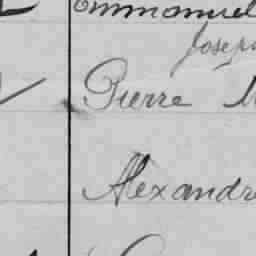 Emmanuel
Joseph
Pierre
Alexandre